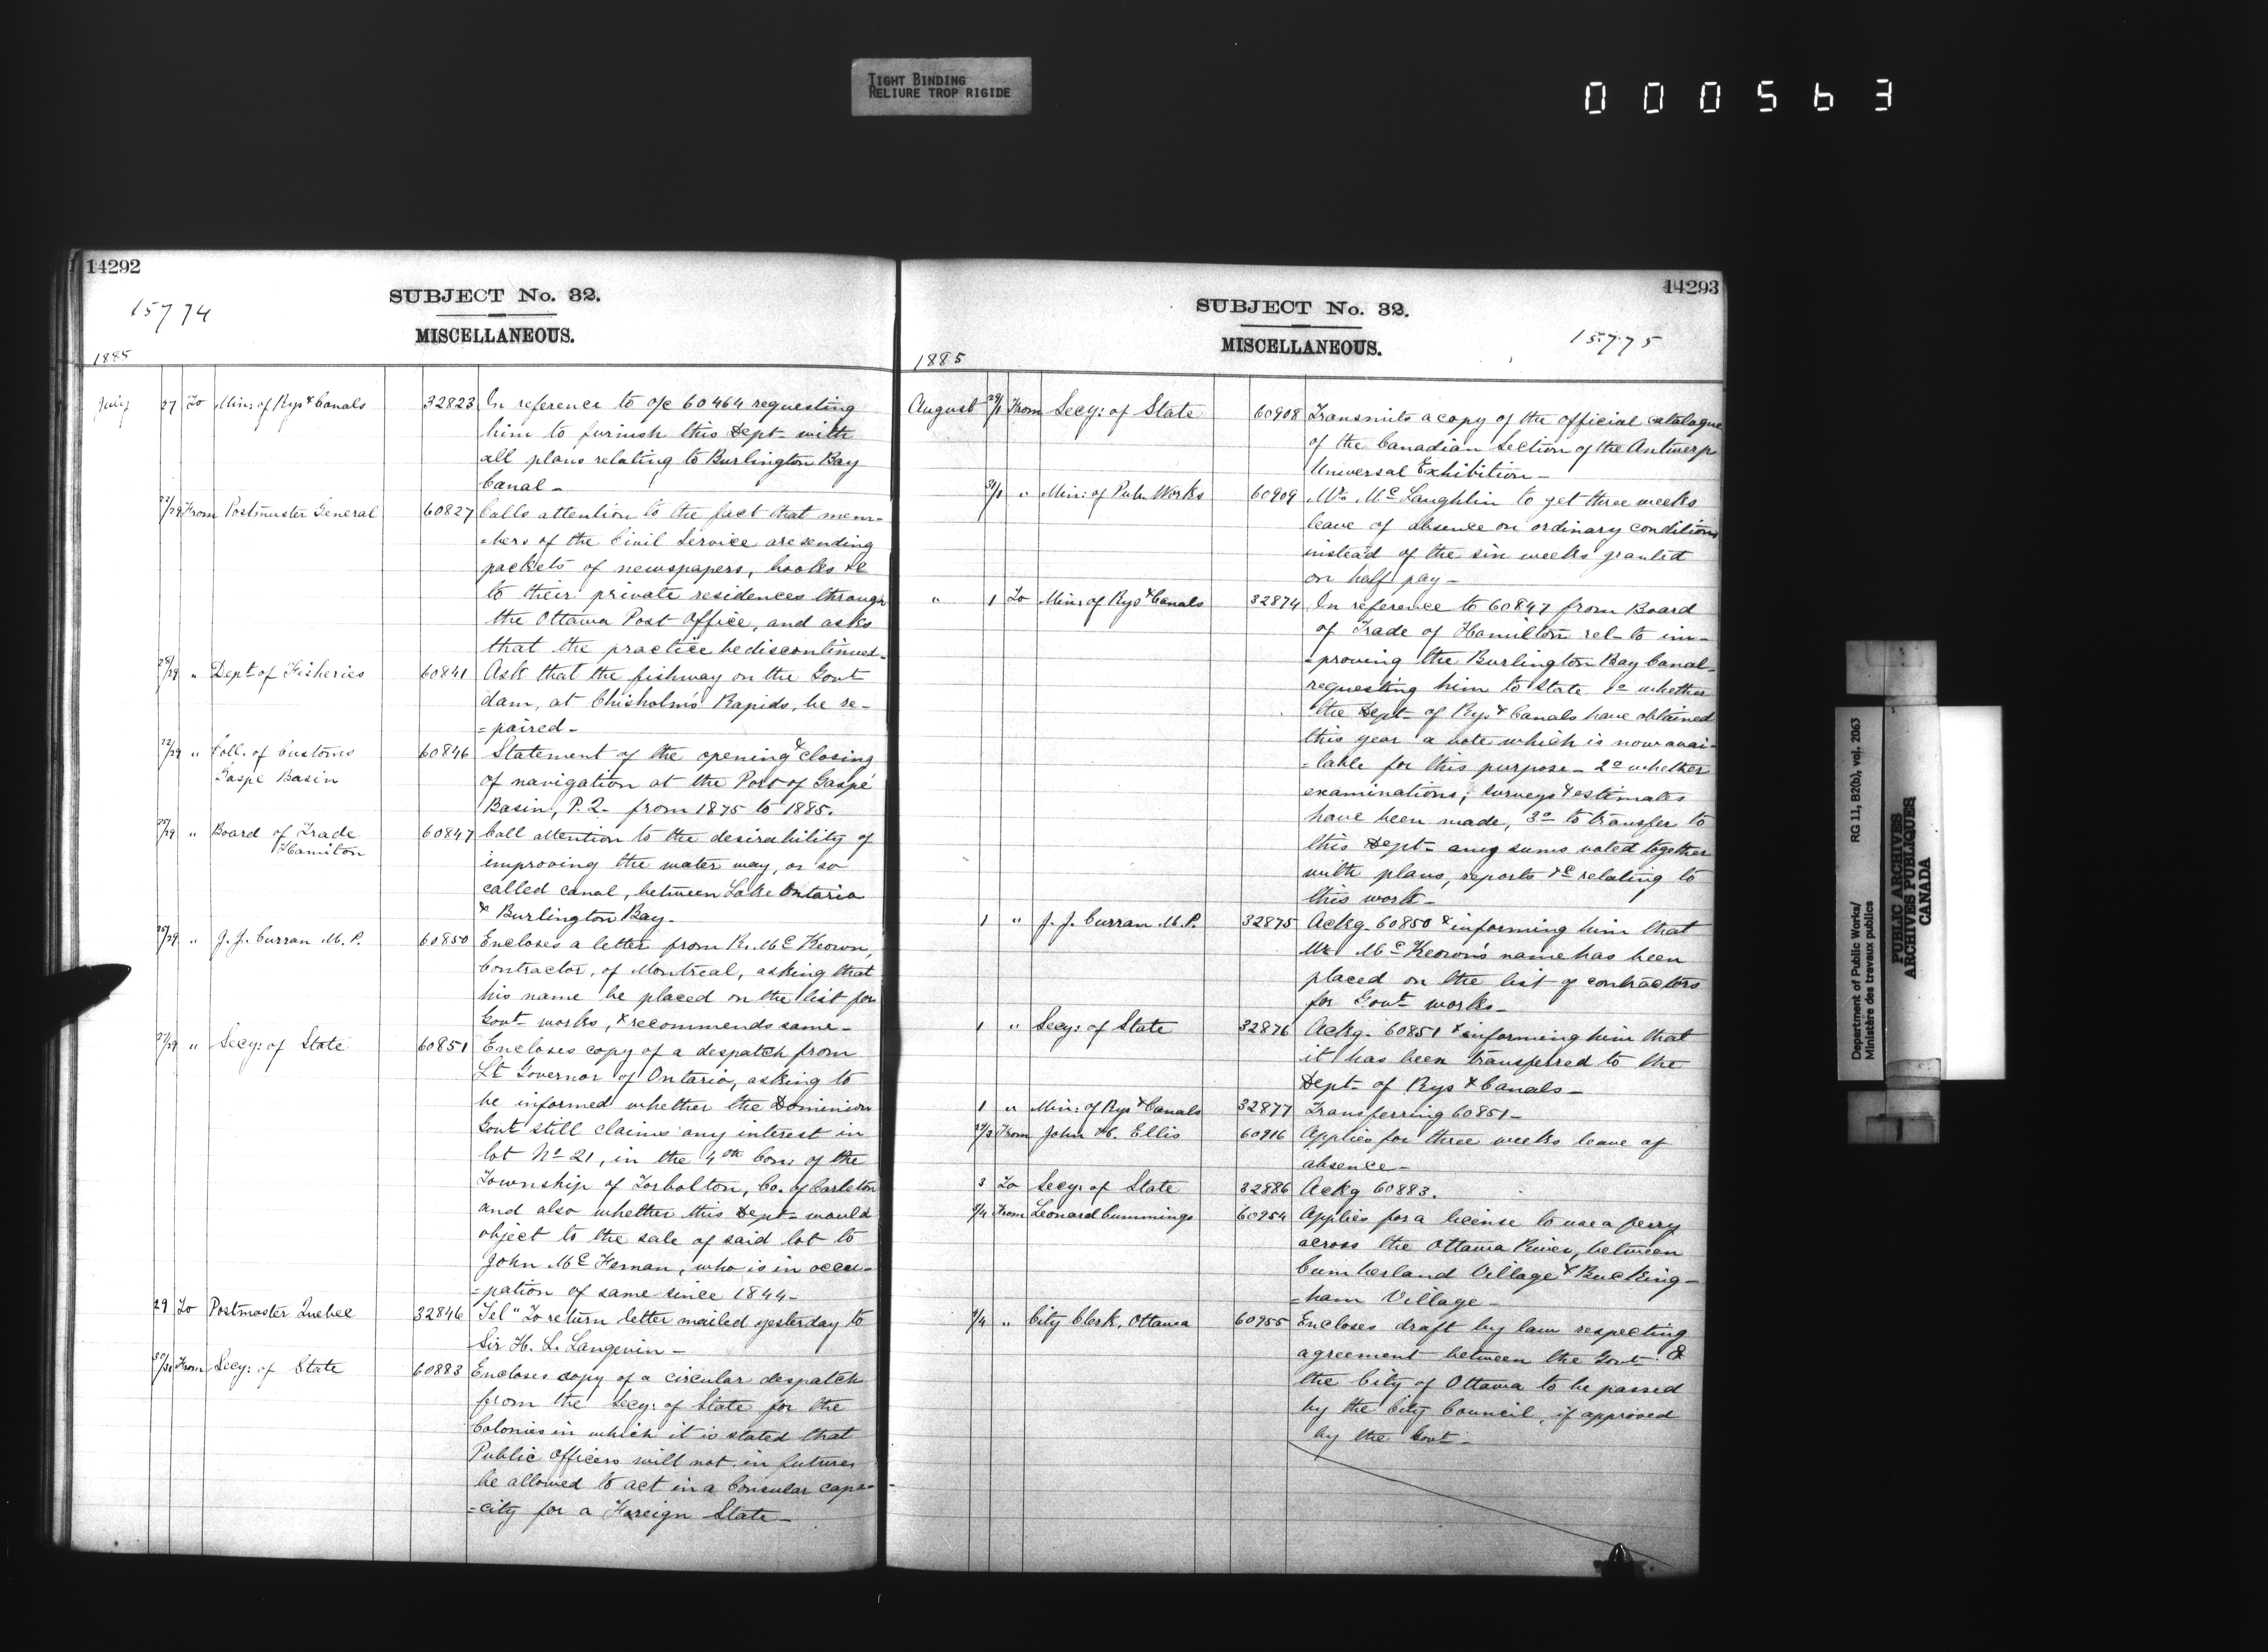 TIGHT BINDING
RELIURE TROP RIGIDE
000563
14292
SUBJECT No. 32.
15774
MISCELLANEOUS.
1885
July 27 To Min: of Rys & Canals 32823 In reference to o/c 60464 requesting
him to furnish this Dept- with
all plans relating to Burlington Bay
Canal-
22/29 From Postmaster General 60827 Calls attention to the fact that mem-
=bers of the Civil Service are sending
packets of newspapers, books &c
to their private residences through
the Ottawa Post Office, and asks
that the practice be discontinued-
28/29 " Dept of Fisheries 60841 Ask that the fishway on the Govt
dam, at Chisholm's Rapids, be re-
=paired-
22/29 " Coll. of Customs 60846 Statement of the opening & closing
Gaspé Basin of navigation at the Port of Gaspé
Basin, P.Q. from 1875 to 1885.
" Board of Trade 60847 Call attention to the desirability of
Hamilton improving the water way, or so
called canal, between Lake Ontario
& Burlington Bay-
" J. J. Curran M.P. 60850 Encloses a letter from R. McKeown,
Contractor, of Montreal, asking that
his name be placed on the list for
Govt- works, & recommends same-
27/29 " Secy: of State 60851 Encloses copy of a despatch from
Lt Governor of Ontario, asking to
be informed whether the Dominion
Govt still claims any interest in
lot No 21, in the 4th Con: of the
Township of Torbolton, Co. of Carleton
and also whether this Dept- would
object to the sale of said lot to
John Mc, who is in occu-
=pation of same since 1844-
29 To Postmaster Quebec 32846 Tel" To return letter mailed yesterday to
Sir H. L. Langevin-
30/31 From Secy: of State 60883 Encloses copy of a circular despatch
from the Secy: of State for the
Colonies in which it is stated that
Public Officers will not in future
be allowed to act in a Consular capa-
=city for a Foreign State-
14293
SUBJECT No. 32.
15775
MISCELLANEOUS.
1885
August 29/1 From Secy: of State 60908 Transmits a copy of the official catalogue
of the Canadian Section of the Antwerp
Universal Exhibition-
31/1 " Min: of Pub. Works 60909 Mr. McLaughlin to get three weeks
leave of absence on ordinary conditions
instead of the six weeks granted
on half pay-
" 1 To Min: of Rys & Canals 32874 In reference to 60847 from Board
of Trade of Hamilton rel- to im-
=proving the Burlington Bay Canal-
requesting him to state 1o whether
the Dept- of Rys & Canals have obtained
this year a vote which is now avai-
=lable for this purpose- 2o whether
examinations, surveys & estimates
have been made, 3o to transfer to
this Dept- any sums voted together
with plans, reports &c relating to
this work-
1 " J. J. Curran M.P. 32875 Ackg. 60850 & informing him that
Mr McKeown's name has been
placed on the list of contractors
for Govt- works-
1 " Secy: of State 32876 Ackg. 60851 & informing him that
it has been transferred to the
Dept- of Rys & Canals-
1 " Min: of Rys & Canals 32877 Transferring 60851-
From John H. Ellis 60916 Applies for three weeks leave of
absence-
3 To Secy: of State 32886 Ackg 60883.
From Leonard Cummings 60954 Applies for a license to use a ferry
across the Ottawa River, between
Cumberland Village & Bucking-
=ham Village-
" City Clerk, Ottawa 60955 Encloses draft by law respecting
agreement between the Govt- &
the City of Ottawa to be passed
by the City Council, if approved
by the Govt-
Department of Public Works/
Ministère des travaux publics
RG 11, B2(b), vol. 2063
PUBLIC ARCHIVES
ARCHIVES PUBLIQUES
CANADA